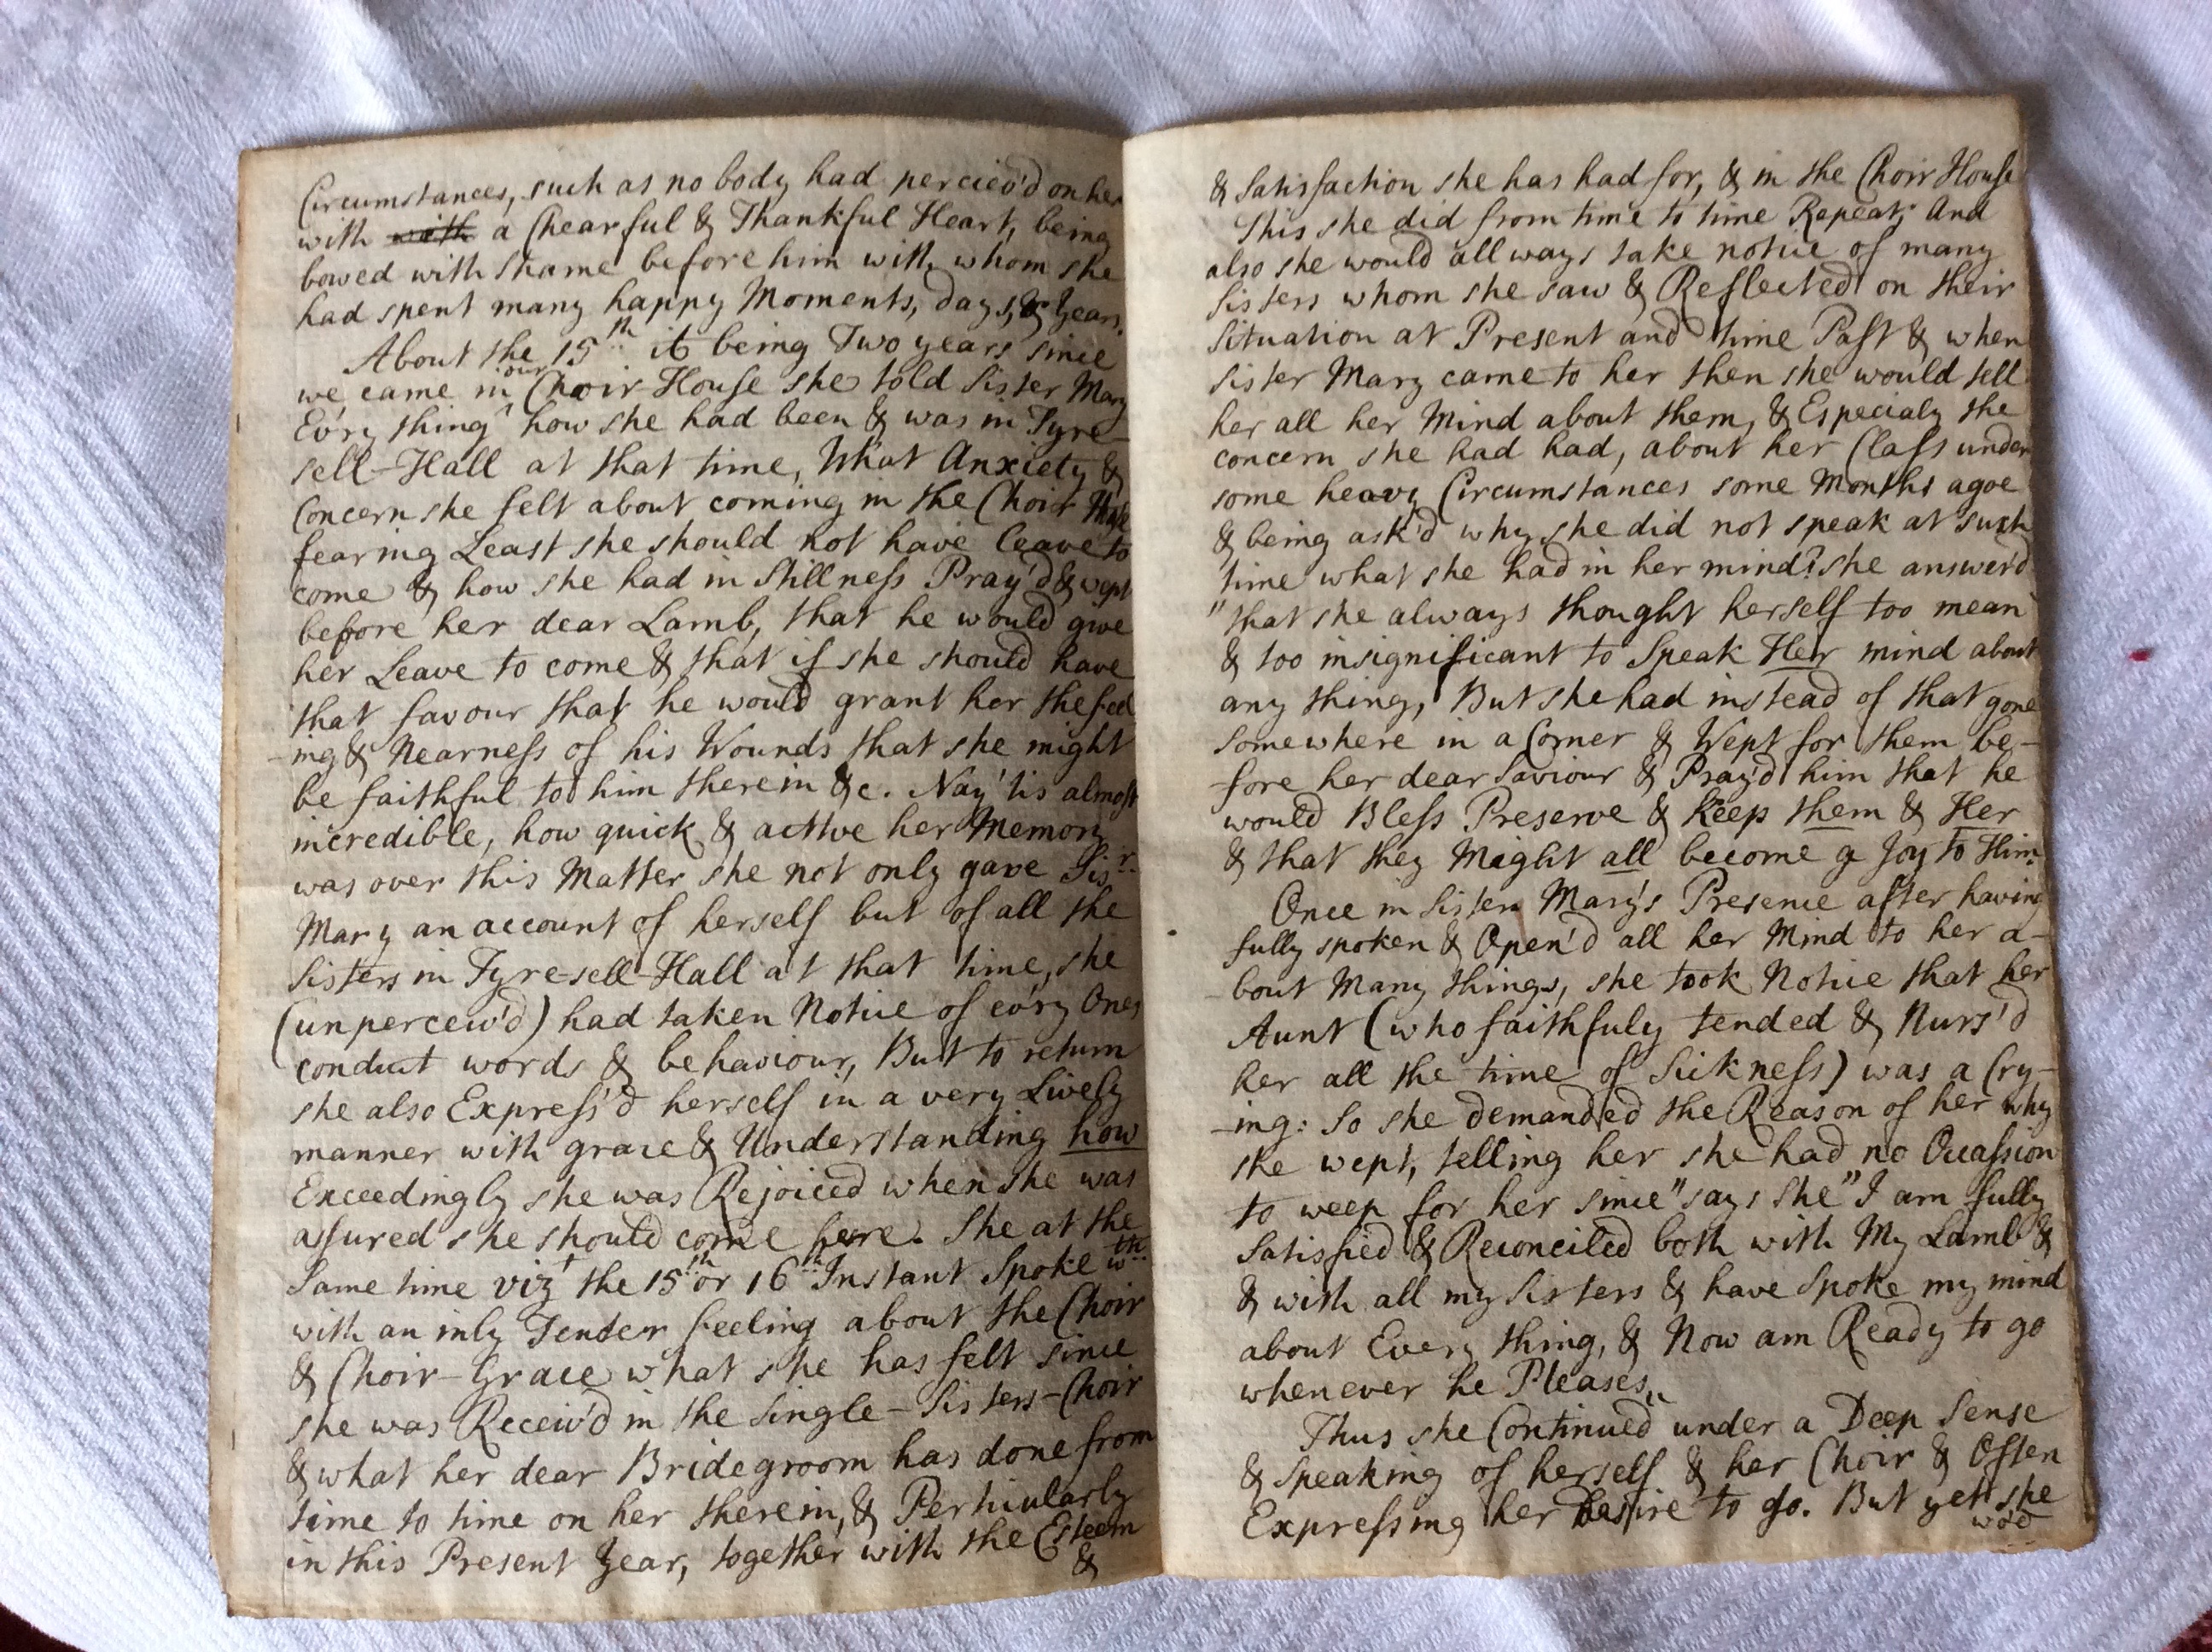 Circumstances, such as no body had perciev'd on her
with with a Chearful & Thankful Heart, being
bowed with Shame before him with whom she
had spent many happy Moments, days, & Years.
About the 15th it being Two years since
we came in our Choir House she told Sister Mary
Ev'ry thing how she had been & was in Tyre-
sell-Hall at that time, What Anxiety &
Concern she felt about coming in the Choir House
fearing Least she should not have leave to
come & how she had in Stillness Pray'd & wept
before her dear Lamb, that he would give
her Leave to come & that if she should have
that favour that he would grant her the feel
-ing & Nearness of his Wounds that she might
be faithful to him therein &c. Nay 'tis almost
incredible, how quick & active her Memory
was over this Matter she not only gave Sisr.
Mary an account of herself but of all the
Sisters in Tyre-sell-Hall at that time, she
(unperceiv'd) had taken Notice of ev'ry Ones
conduct words & behaviour, But to return
she also Express'd herself in a very Lively
manner with grace & Understanding how
Exceedingly she was Rejoiced when she was
assured she should come here. She at the
Same time vizt the 15th or 16th Instant Spoke wth
with an inly Tender feeling about the Choir
& Choir-Grace what she has felt since
she was Receiv'd in the Single-Sisters-Choir
& what her dear Bridegroom has done from
time to time on her therein, & Perticularly
in this Present Year, together with the Esteem
&
& Satisfaction she has had for, & in the Choir House
This she did from time to time Repeat; And
also she would allways take notice of many
Sisters whom she saw & Reflected on their
Situation at Present and time Past & when
Sister Mary came to her then she would tell
her all her Mind about them, & Especialy the
concern she had had, about her Class under
some heavy Circumstances some Months agoe
& being ask'd why she did not speak at such
time what she had in her mind? she answer'd
"that she always thought herself too mean
& too insignificant to Speak Her mind about
any thing, But she had instead of that gone
somewhere in a Corner & Wept for them be-
fore her dear Saviour & Pray'd him that he
would Bless Preserve & Keep them & Her
& that they Might all become a Joy to Him.
Once in Sister Mary's Presence after having
fully spoken & Open'd all her Mind to her a-
-bout Many things, she took Notice that her
Aunt (who faithfuly tended & Nurs'd
her all the time of Sickness) was a Cry-
-ing: So she demanded the Reason of her why
she wept, telling her she had no Occassion
to weep for her since "says she" I am fully
Satisfied & Reconciled both with My Lamb &
& with all my Sisters & have Spoke my mind
about Every thing, & Now am Ready to go
whenever he Pleases"
Thus she Continued under a Deep Sense
& Speaking of herself & her Choir & Often
Expressing her Desire to go. But yet she
wo'd